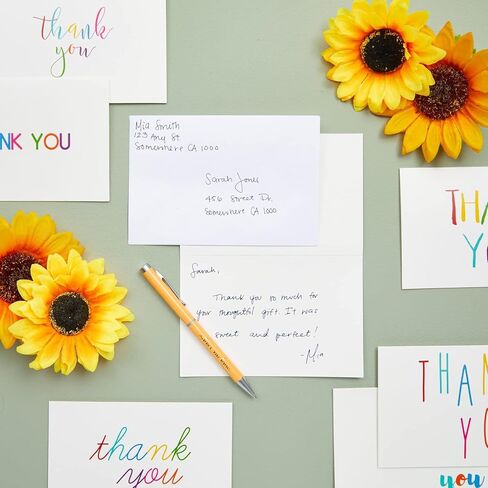 thank
you
NK YOU
Mia Smith
123 Any St.
Somewhere CA 1000
Sarah Jones
456 Street Dr.
Somewhere CA 1000
Sarah,
Thank you so much for
your thoughtful gift. It was
sweet and perfect!
-Mia
THA
Y
THAN
YO
you
thank
you